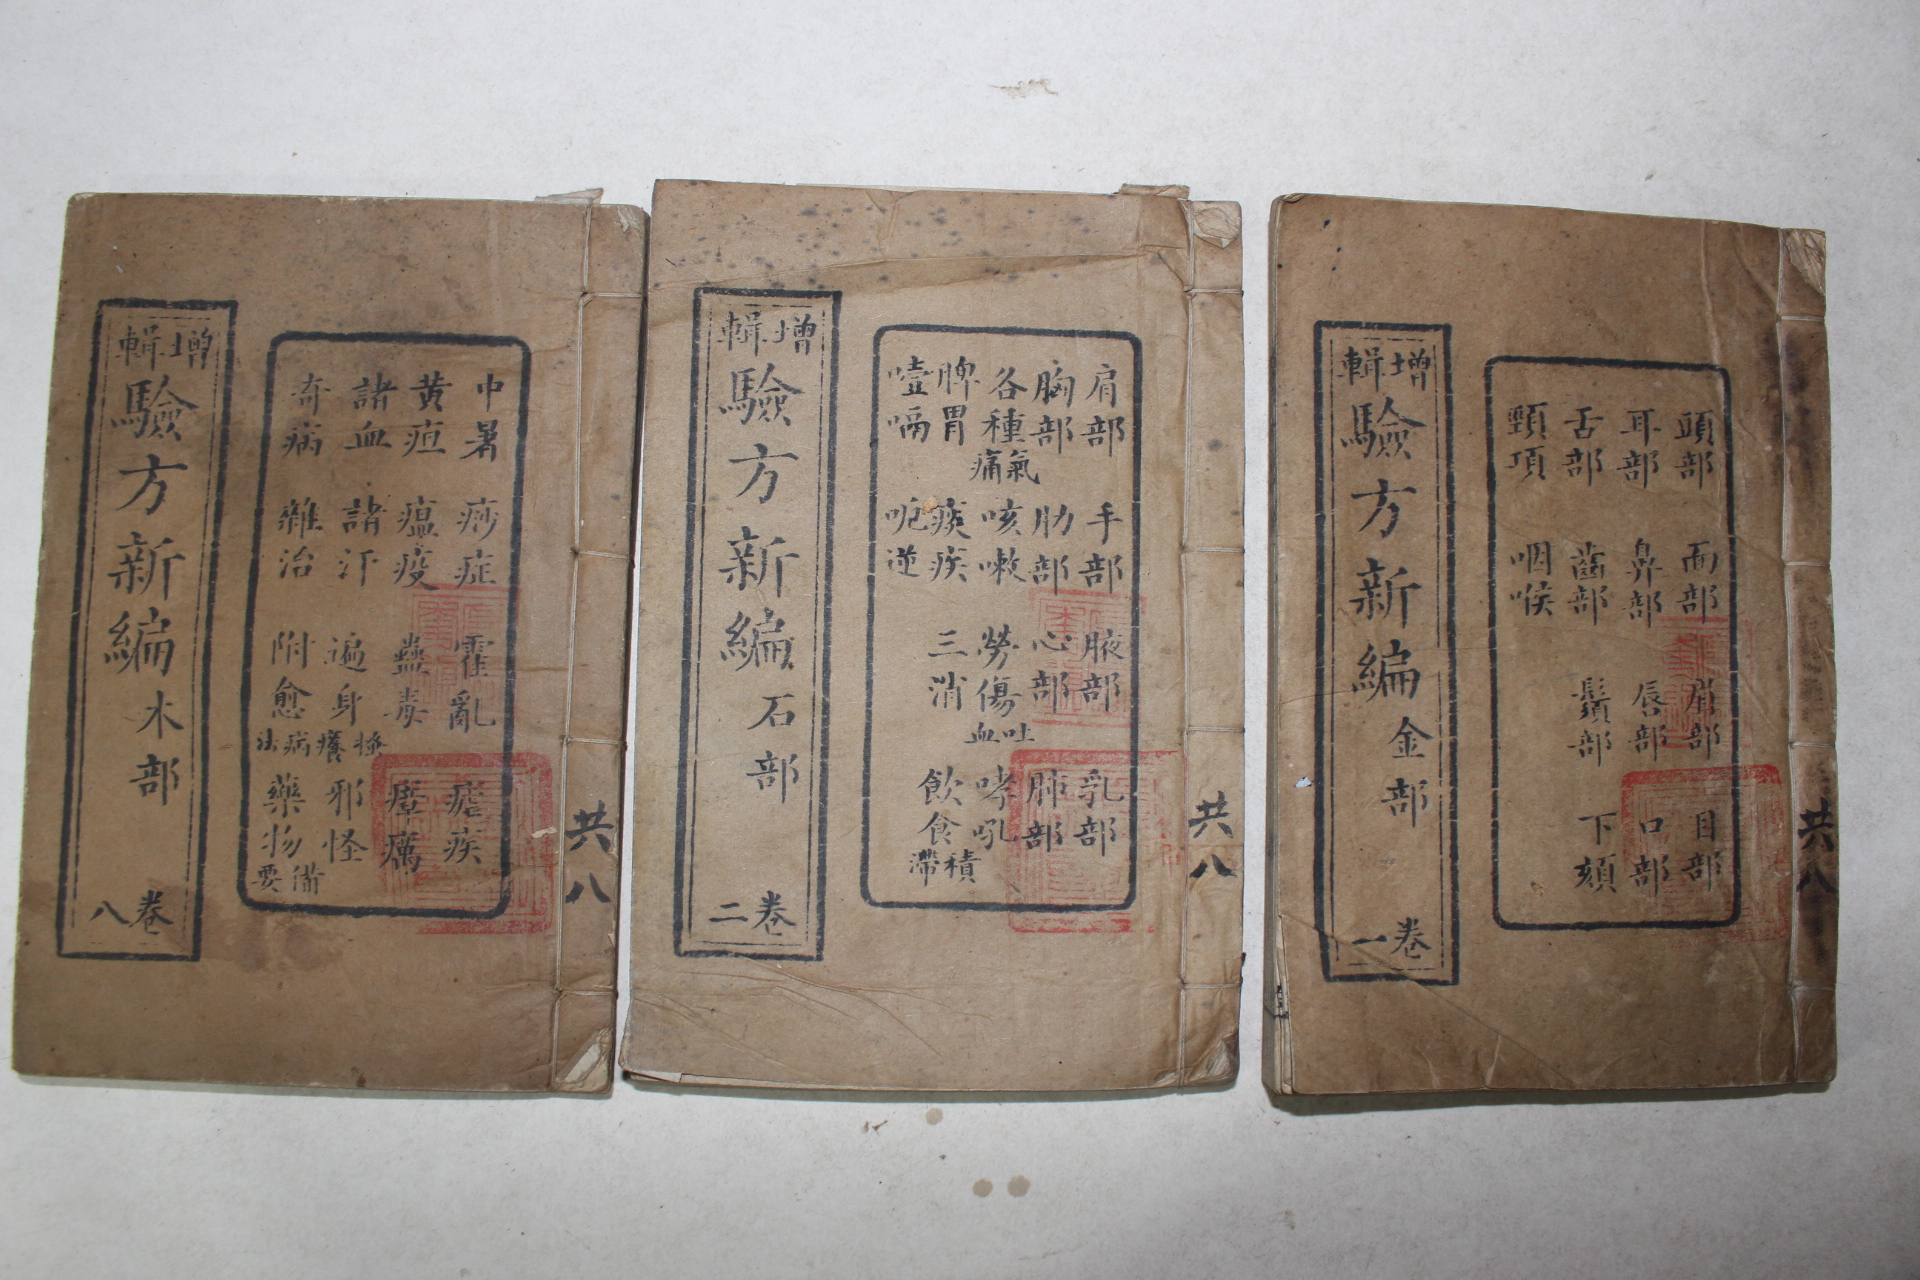 頭部 面部 肩部 目部
耳部 鼻部 唇部 口部
舌部 齒部 鬚部 下頦
頸項 咽喉
增輯
驗方新編 金部
卷一
共八
肩部 手部 腋部 乳部
胸部 肋部 心部 肺部
各種氣痛 咳嗽 勞傷吐血 哮吼
脾胃 痰疾 三消 飲食積滯
噎嗝 呃逆
增輯
驗方新編 石部
卷二
共八
中暑 痧症 霍亂 瘧疾
黄疸 瘟疫 蠱毒 瘴癘
諸血 諸汗 遍身 邪怪
奇病 雜治 附愈 藥物備要
癢病法
增輯
驗方新編 木部
卷八
共八